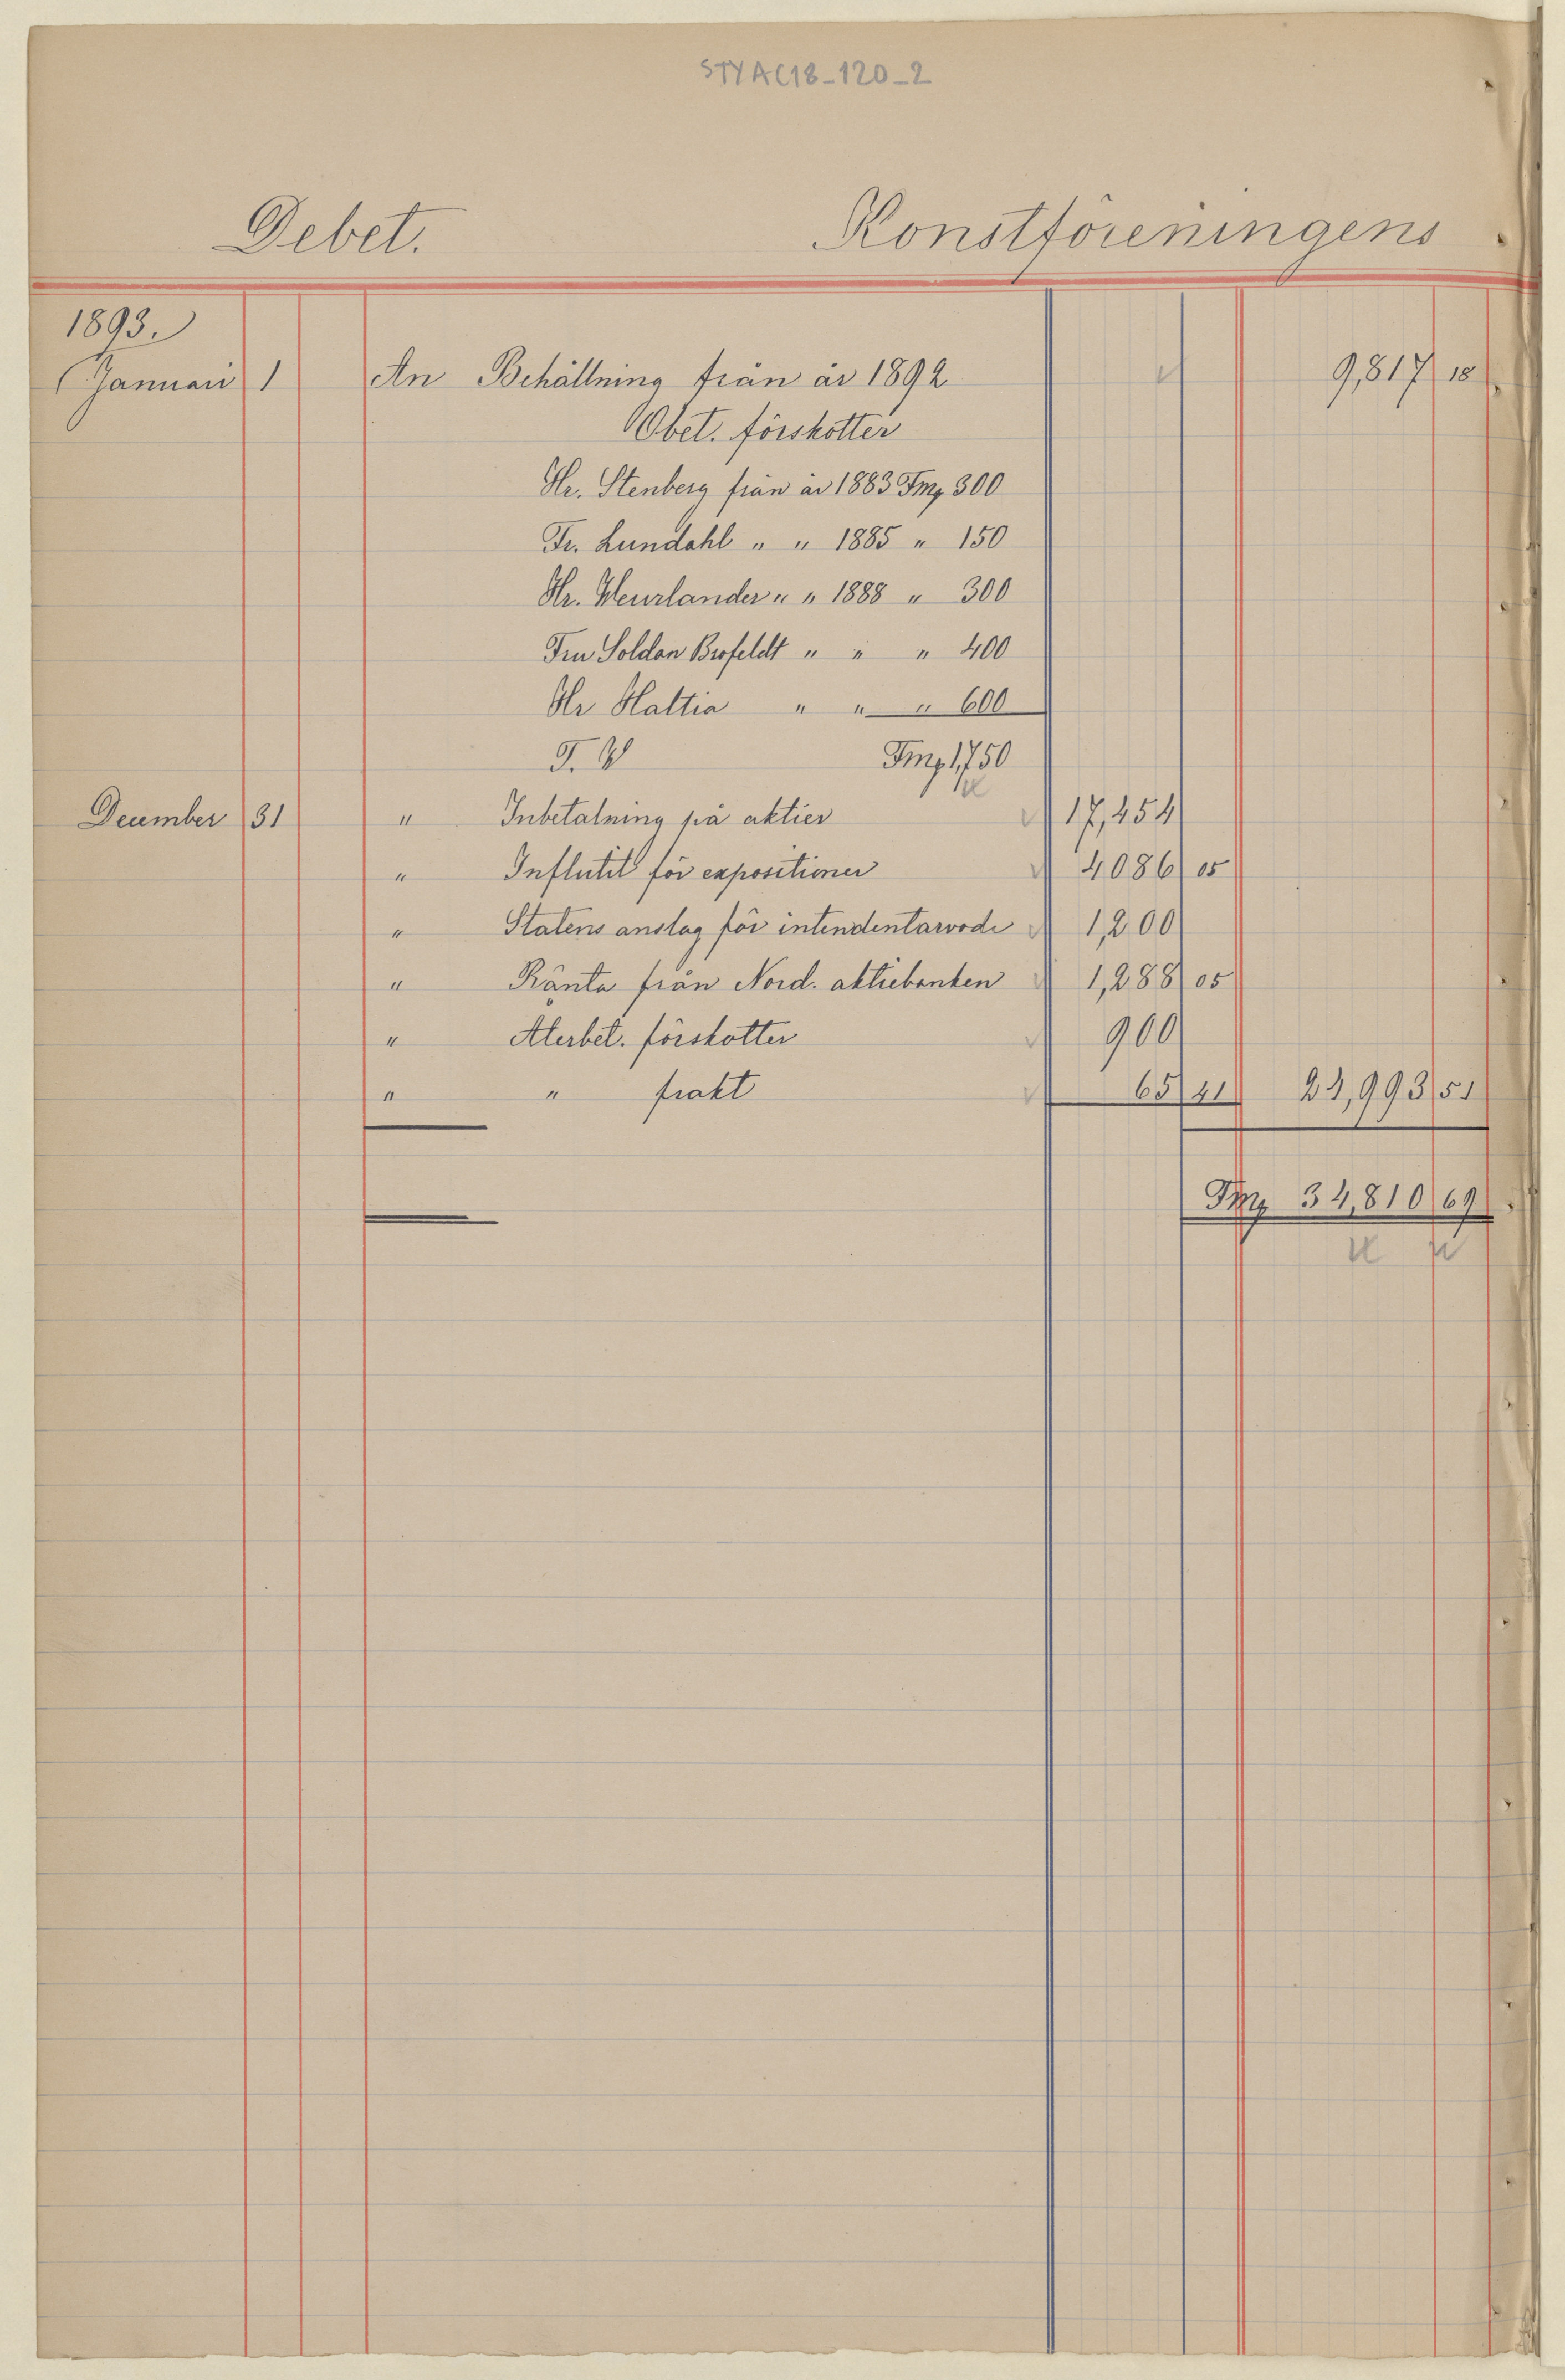 STYAC18-120-2
Debet. Konstföreningens
1893.
Januari 1 An Behållning från år 1892 9,817 18
Obet. förskotter
Hr. Stenberg från år 1883 Fmg 300
Fr. Lundahl " " 1885 " 150
Hr. Wenrlander " " 1888 " 300
Fru Soldan Brofeldt " " " 400
Hr Haltia " " " 600
F. V Fmg 1,750
December 31 " Inbetalning på aktier 17,454
" Influtit för expositioner 4086 05
" Statens anslag för intendentarvode 1,200
" Ränta från Nord. aktiebanken 1,288 05
" Återbet. förskotter 900
" " frakt 65 41 24,993 51
Fmg 34,810 69